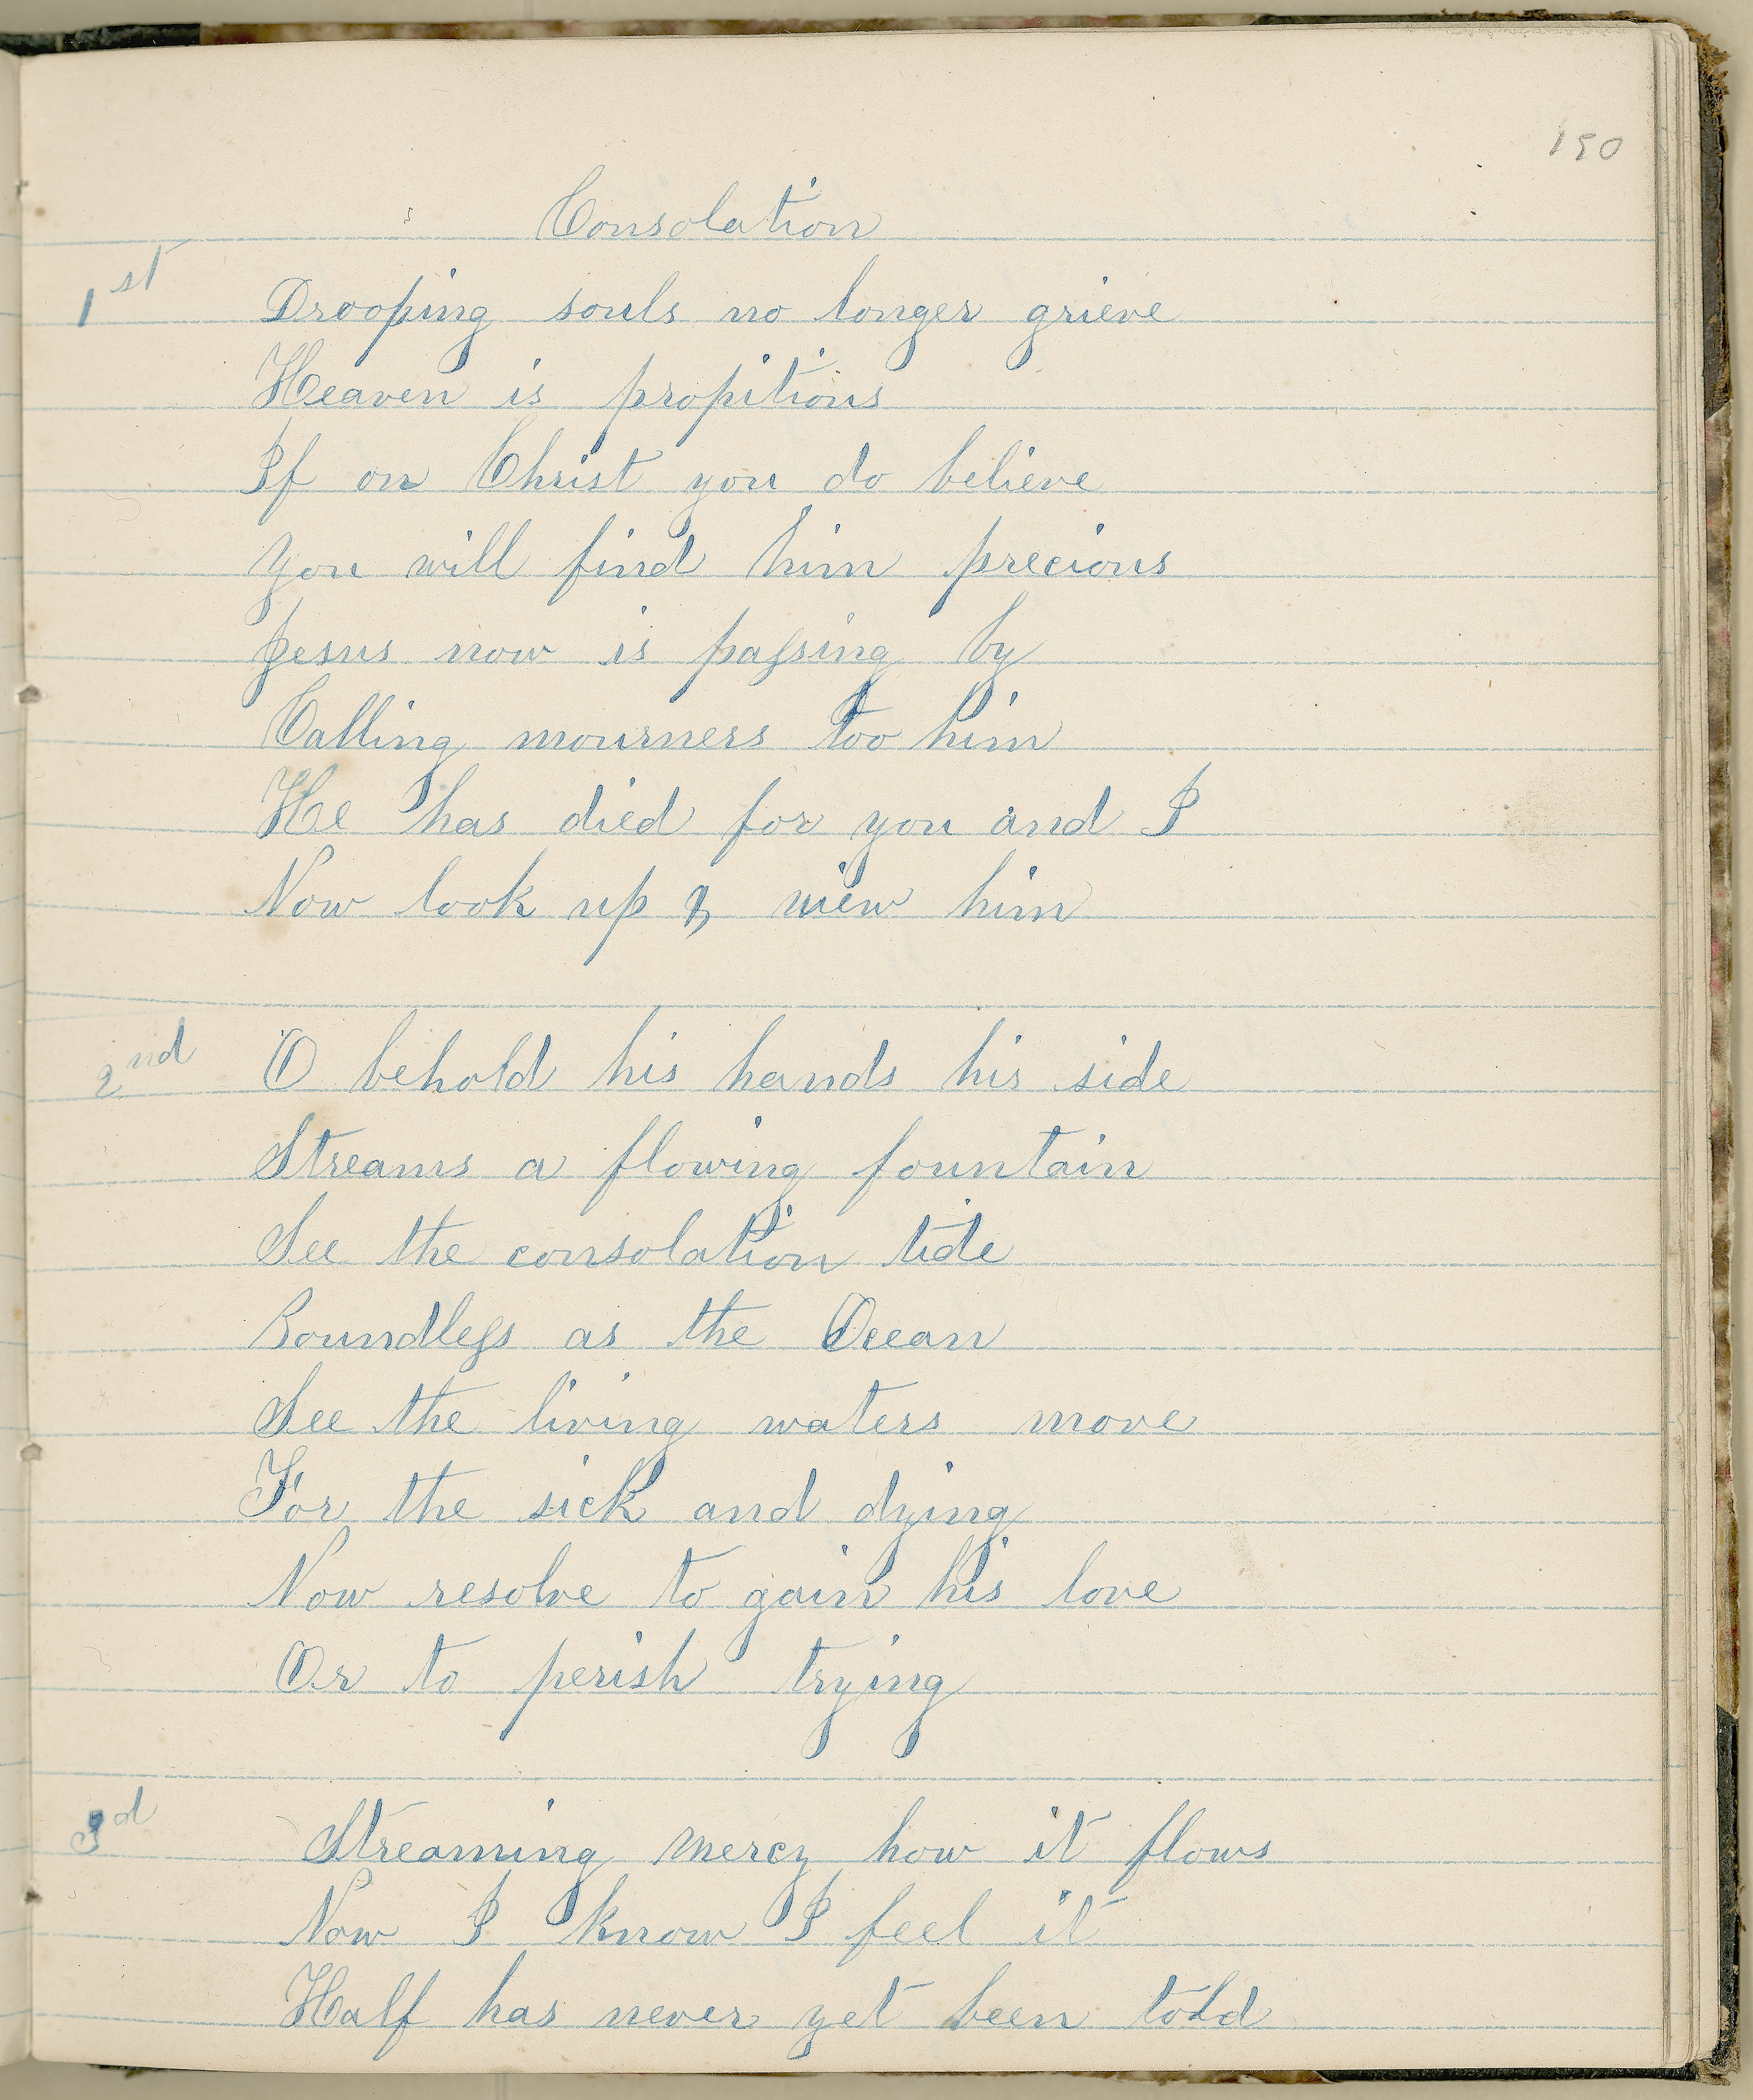 190
Consolation
1st Drooping souls no longer grieve
Heaven is propitious
If on Christ you do believe
you will find him precious
Jesus now is paſsing by
Calling mourners too him
He has died for you and I
Now look up & view him
2nd O behold his hands his side
Streams a flowing fountain
See the consolation tide
Boundleſs as the Ocean
See the living waters move
For the sick and dying
Now resolve to gain his love
Or to perish trying
3d Streaming mercy how it flows
Now I know I feel it
Half has never yet been told